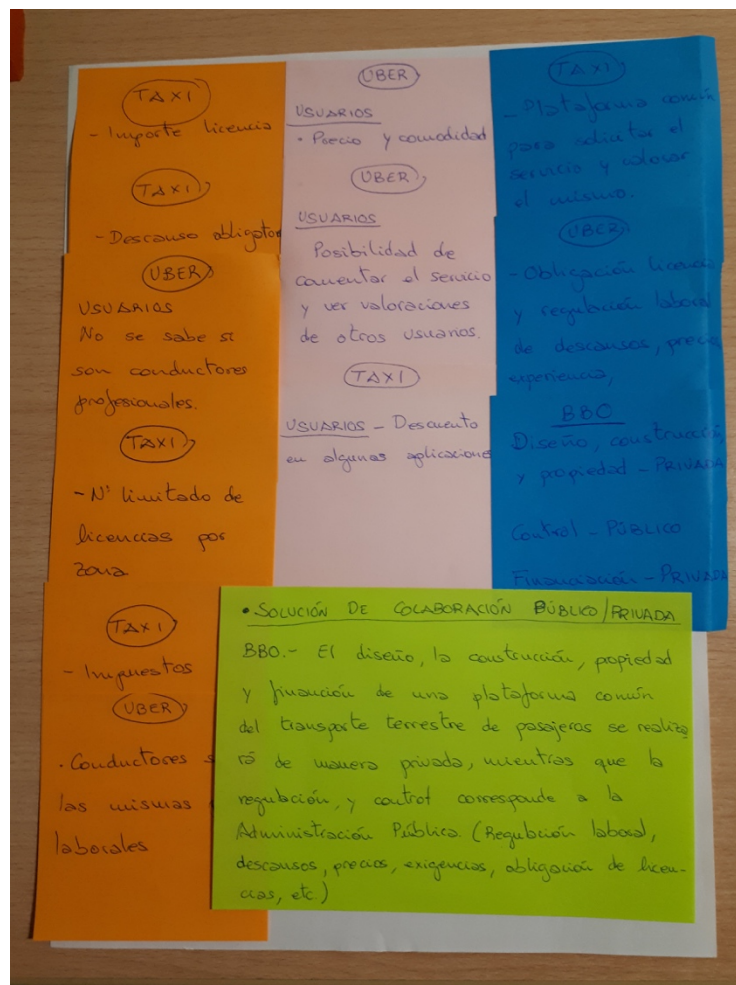 TAXI
- Importe licencia
TAXI
- Descanso obligator
UBER
USUARIOS
No se sabe si
son conductores
profesionales.
TAXI
- Nº limitado de
licencias por
zona
TAXI
- Impuestos
UBER
· Conductores s
las mismas
laborales
UBER
USUARIOS
· Precio y comodidad
UBER
USUARIOS
Posibilidad de
comentar el servicio
y ver valoraciones
de otros usuarios.
TAXI
USUARIOS - Descuento
en algunas aplicaciones
TAXI
- Plataforma común
para solicitar el
servicio y valorar
el mismo.
UBER
- Obligación licencia
y regulación laboral
de descansos, precio,
experiencia,
BBO
Diseño, construcción
y propiedad - PRIVADA
Control - PÚBLICO
Financiación - PRIVADA
• SOLUCIÓN DE COLABORACIÓN PÚBLICO/PRIVADA
BBO.- El diseño, la construcción, propiedad
y financión de una plataforma común
del transporte terrestre de pasajeros se realiza
rá de manera privada, mientras que la
regulación, y control corresponde a la
Administración Pública. (Regulación laboral,
descansos, precios, exigencias, obligación de licen-
cias, etc)